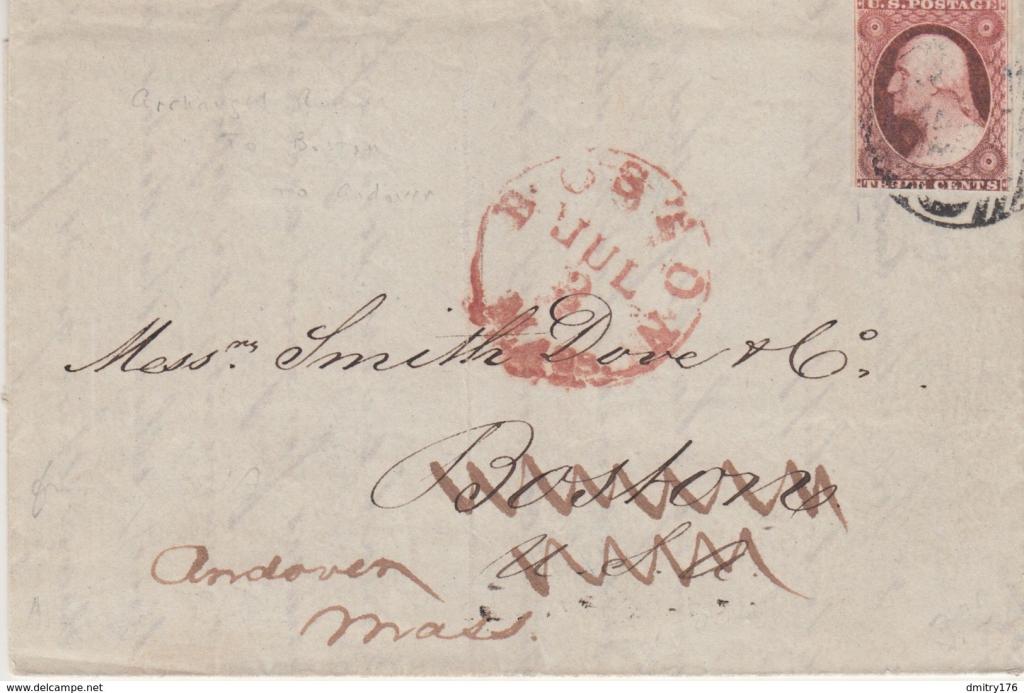 U.S. POSTAGE
THREE CENTS
Archangel Russia
To Boston
To Andover
BOSTON
JUL
Messrs. Smith Dove & Co.
Boston
U.S.A.
Andover
Mass.
www.delcampe.net
dmitry176